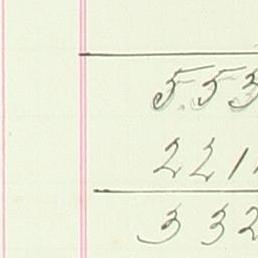 5.53
221
332